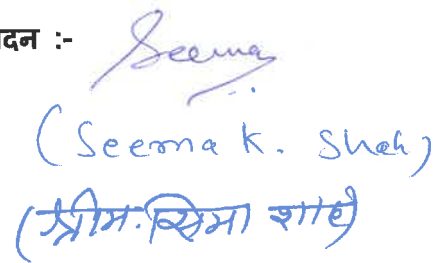 दन :- Seema
(Seema K. Shah)
(श्रीम. सिमा शाह)